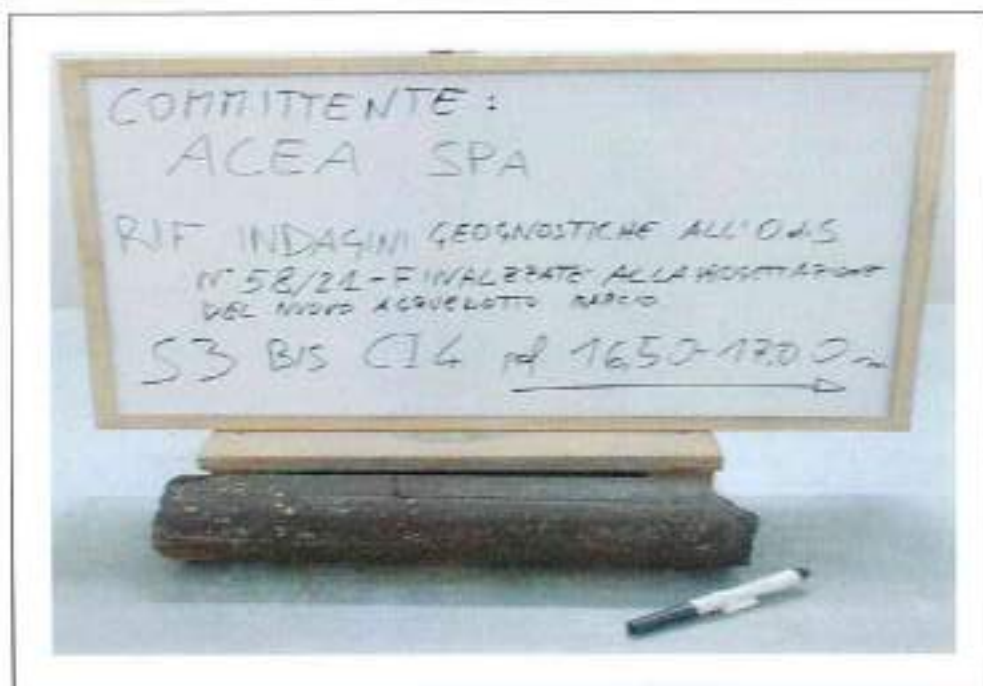 COMMITTENTE :
ACEA SPA
RIF INDAGINI GEOGNOSTICHE ALL'OdS
N° 58/21 - FINALIZZATE ALLA PROGETTAZIONE
DEL NUOVO ACQUEDOTTO MARCIO
S3 BIS CI4 prof 16,50-17,00 m